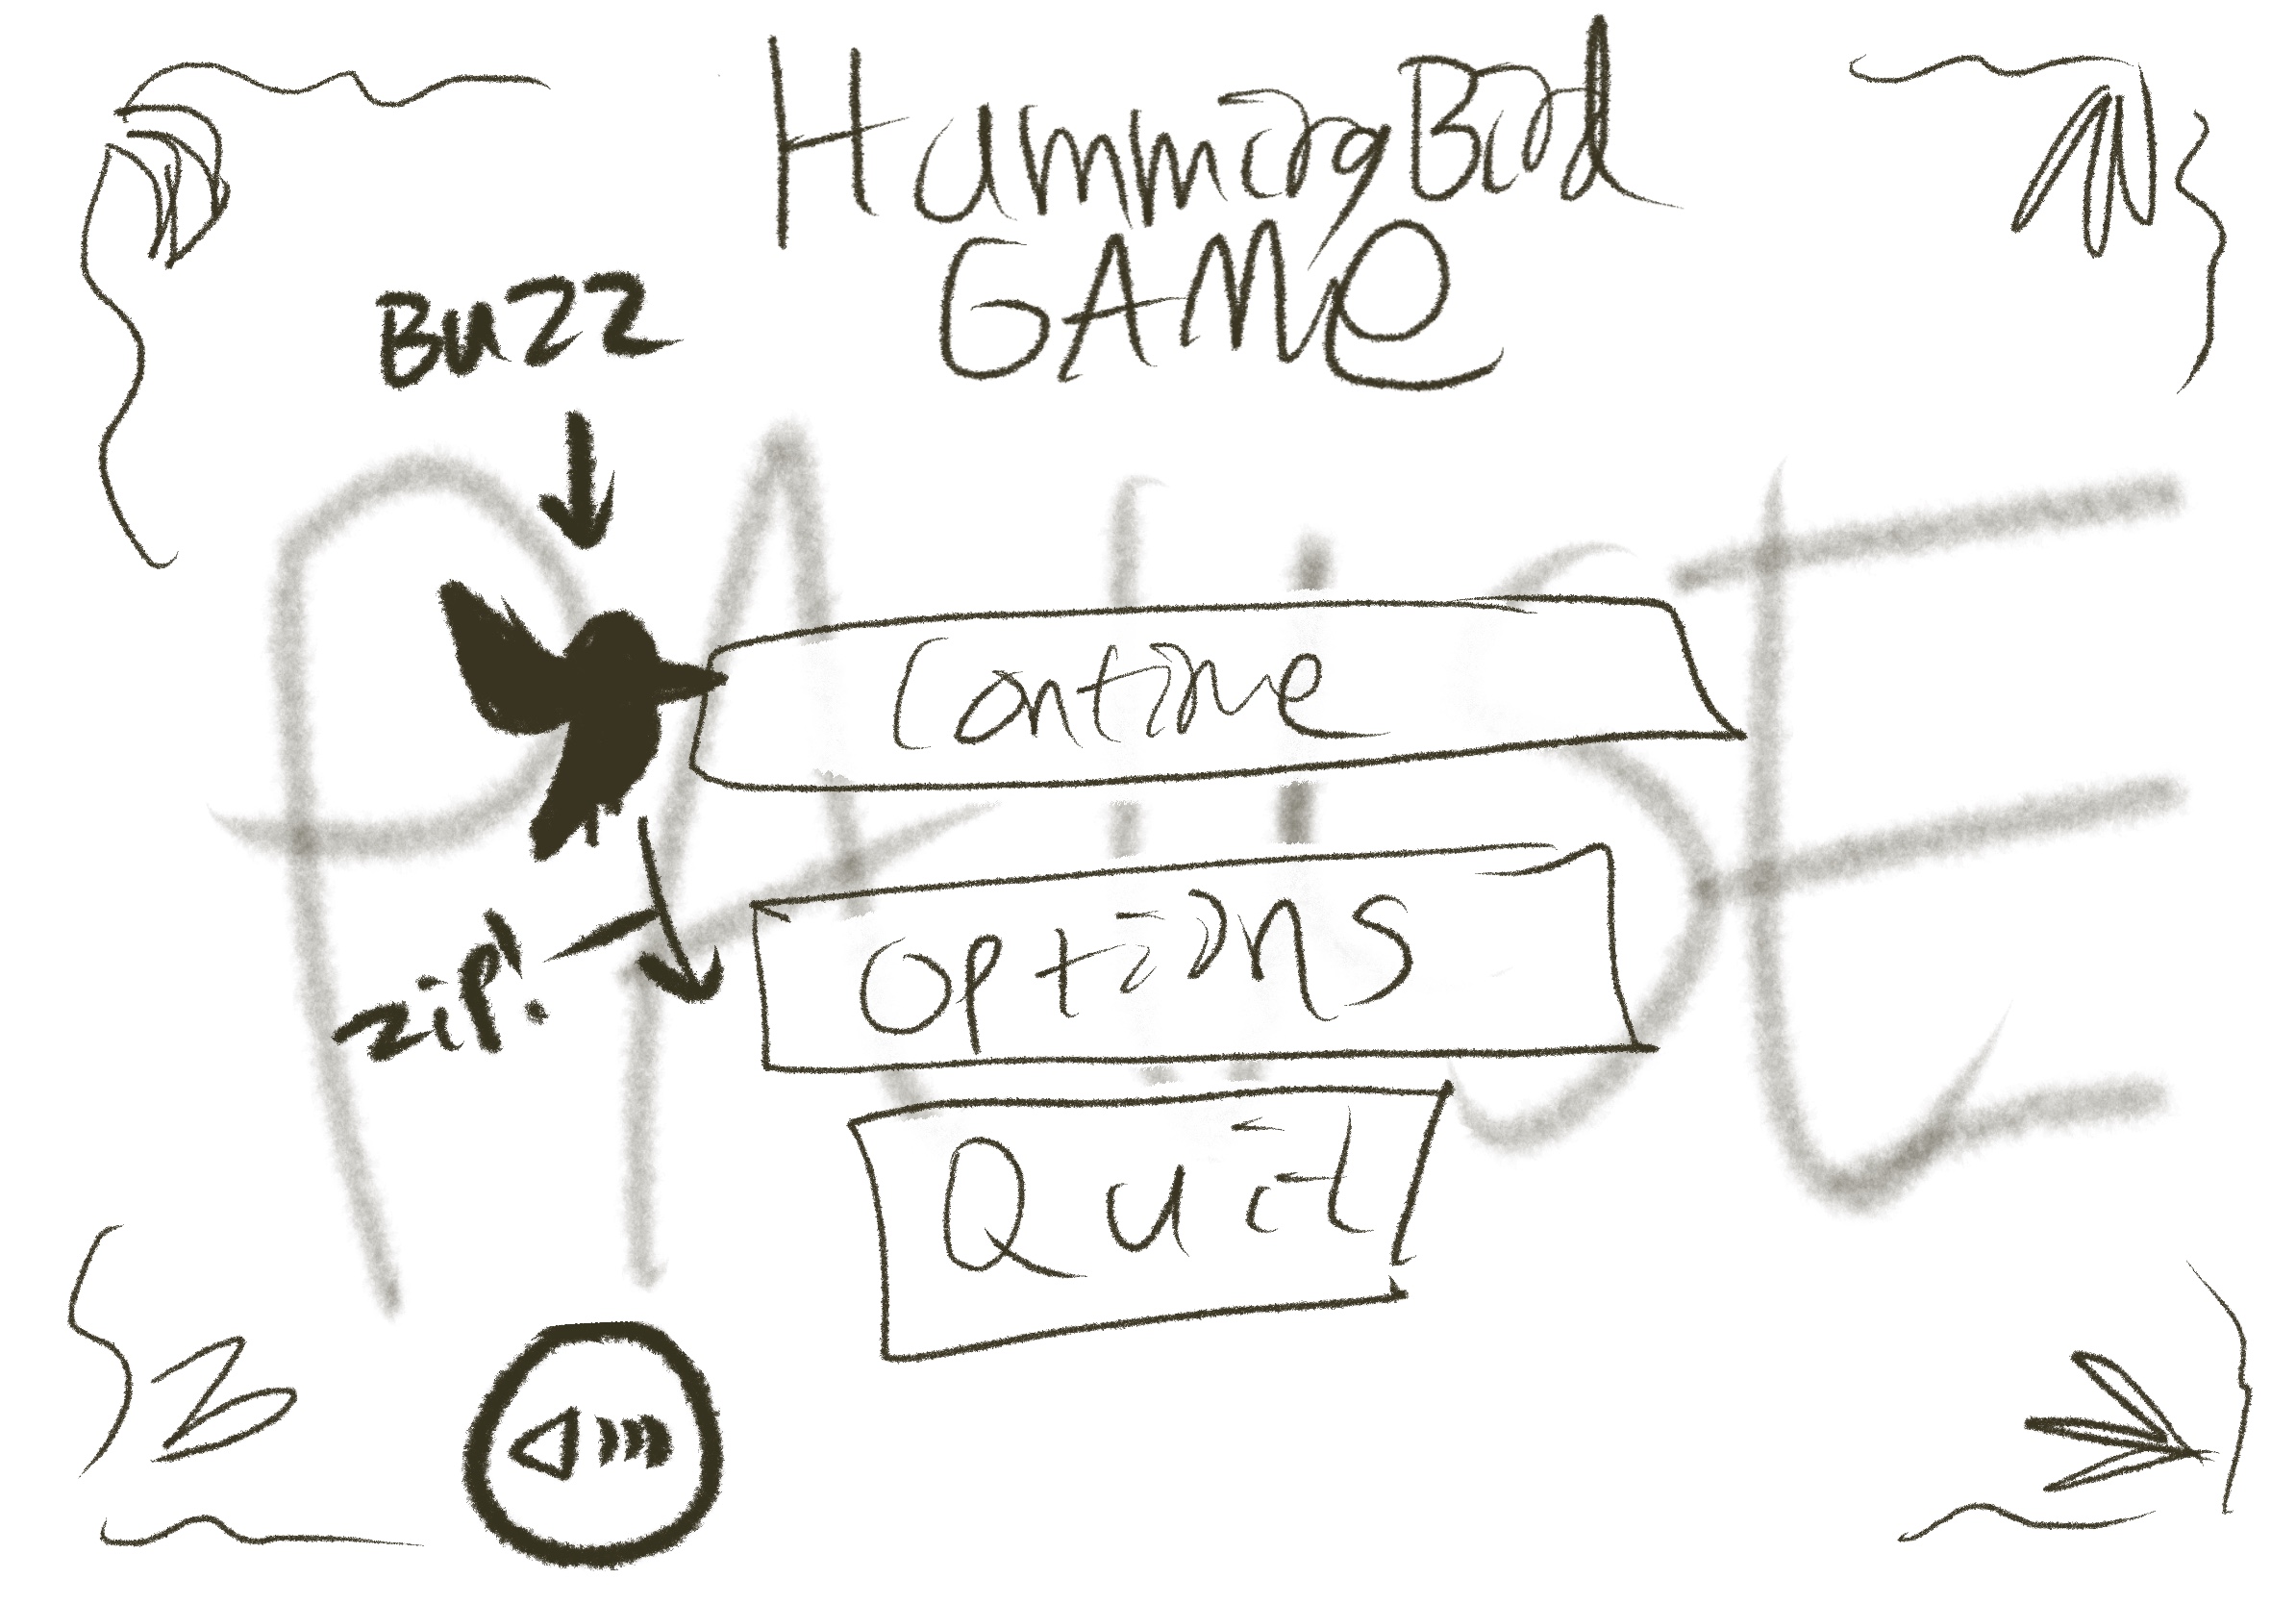 HummingBird
GAMe
BUZZ
PAUSE
Continue
Options
ZiP!
Quit